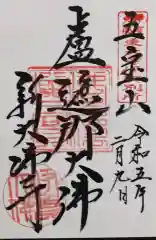 五宝山
令和五年
二月九日
盧遮那大佛
新大佛寺